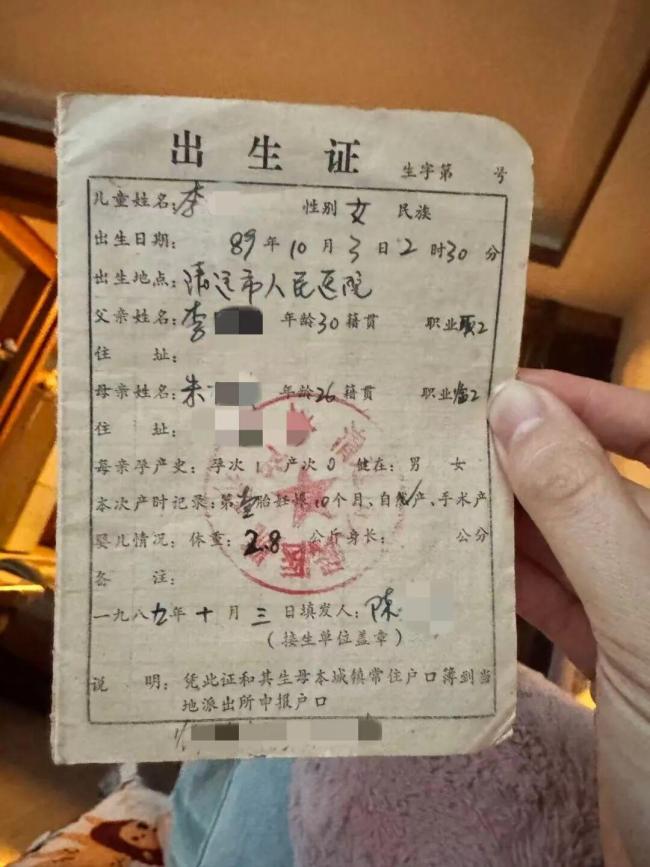 出生证
生字第 号
儿童姓名：李 性别 女 民族
出生日期： 89年10月3日2时30分
出生地点：清远市人民医院
父亲姓名：李 年龄30 籍贯 职业
住 址：
母亲姓名：朱 年龄26 籍贯 职业
住 址：
母亲孕产史：孕次1 产次0 健在：男 女
本次产时记录：第壹胎妊娠10个月、自然产、手术产
婴儿情况：体重：2.8 公斤身长： 公分
备 注：
一九八九年十月三日填发人：陈
（接生单位盖章）
说 明：凭此证和其生母本城镇常住户口簿到当
地派出所申报户口